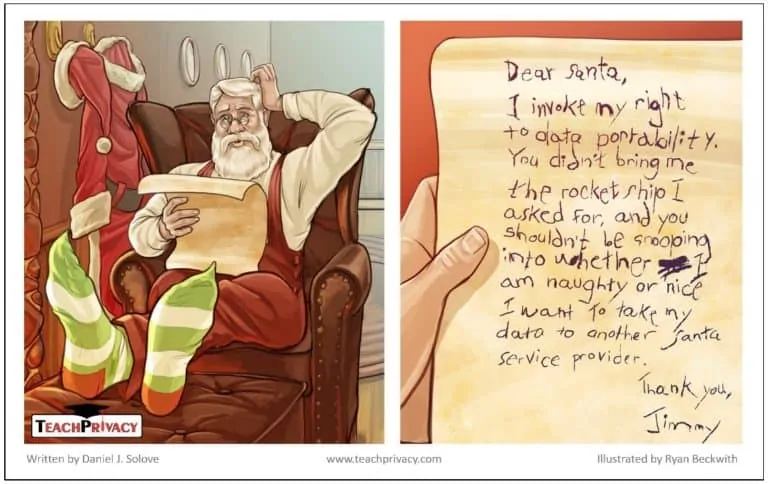 Dear Santa,
I invoke my right
to data portability.
You didn't bring me
the rocket ship I
asked for, and you
shouldn't be snooping
into whether I
am naughty or nice
I want to take my
data to another Santa
service provider.
Thank you,
Jimmy
TEACHPRIVACY
Written by Daniel J. Solove
www.teachprivacy.com
Illustrated by Ryan Beckwith